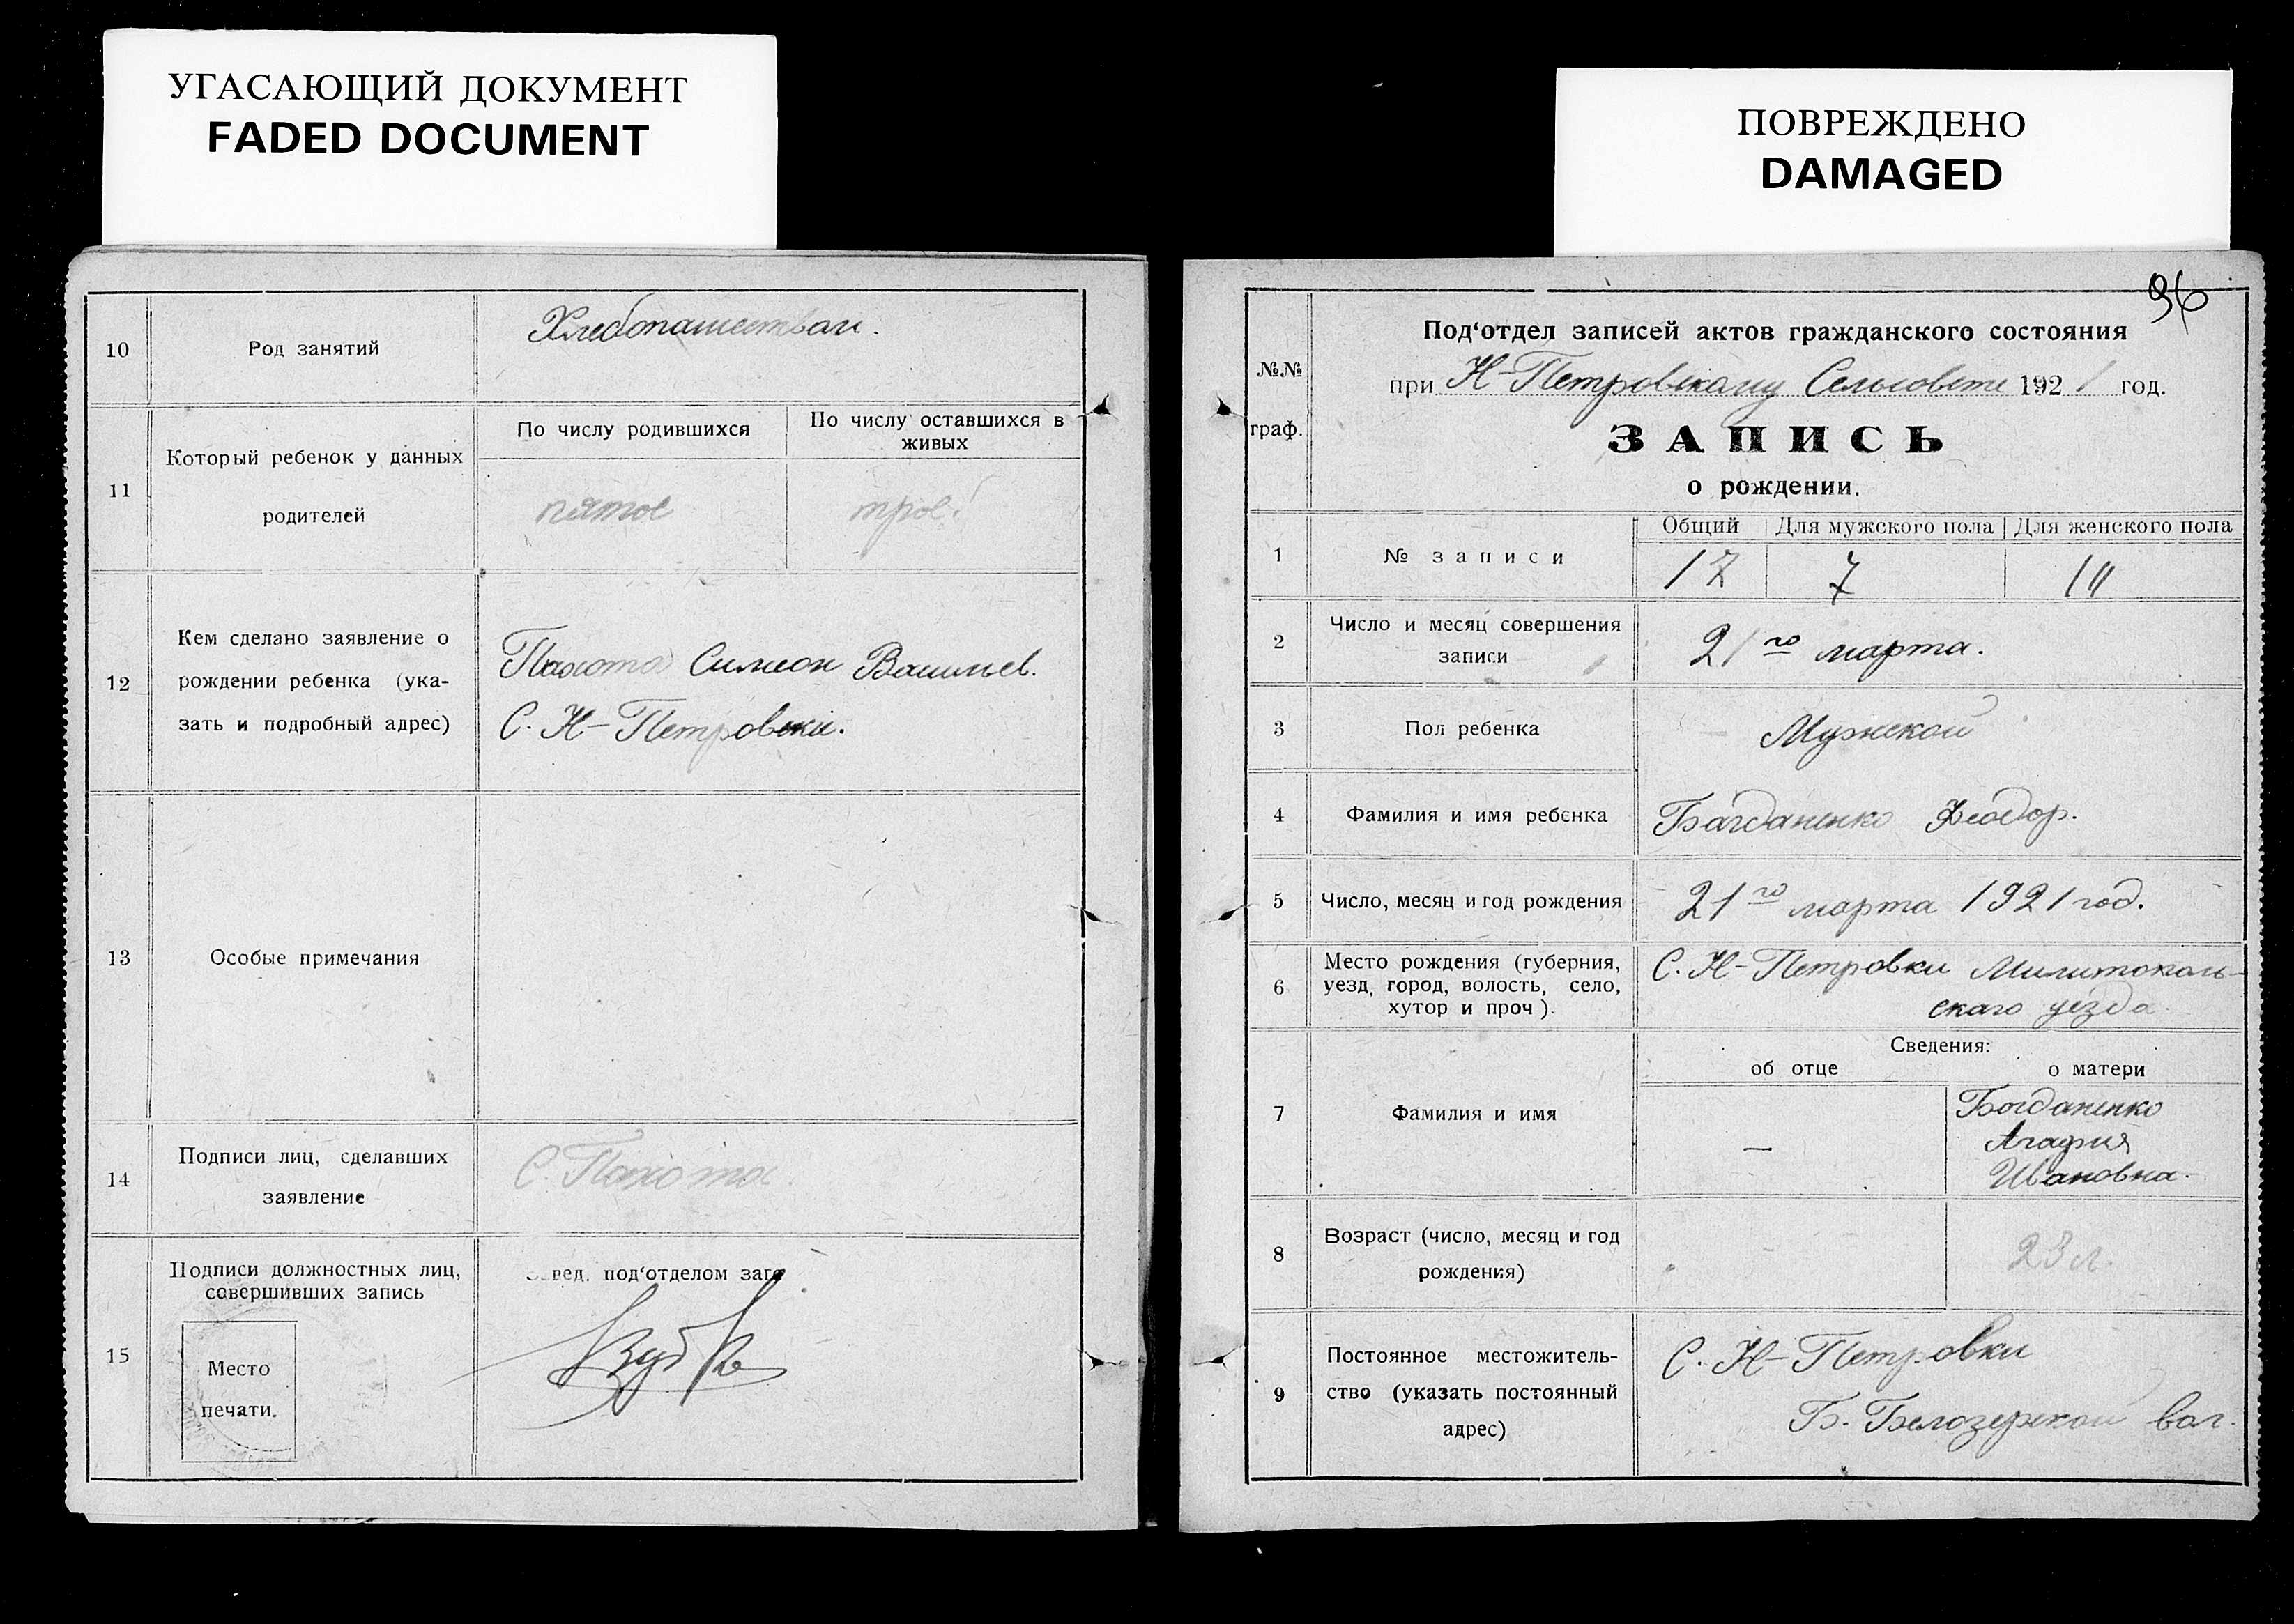 УГАСАЮЩИЙ ДОКУМЕНТ
FADED DOCUMENT
ПОВРЕЖДЕНО
DAMAGED
10
Род занятий
Хлебопашеством.
11
Который ребенок у данных
родителей
По числу родившихся
По числу оставшихся в
живых
пятое
трое
12
Кем сделано заявление о
рождении ребенка (ука-
зать и подробный адрес)
Пахота Симеон Васильев.
С. Н-Петровки.
13
Особые примечания
14
Подписи лиц, сделавших
заявление
С. Пахота.
15
Подписи должностных лиц,
совершивших запись
Место
печати.
Завед. под‘отделом загс
96
№№
граф.
Под‘отдел записей актов гражданского состояния
при Н-Петровскому Сельсовете 1921 год.
ЗАПИСЬ
о рождении.
1
№ записи
Общий
Для мужского пола
Для женского пола
17
7
10
2
Число и месяц совершения
записи
21го марта.
3
Пол ребенка
Мужской
4
Фамилия и имя ребенка
Багданенко Феодор.
5
Число, месяц и год рождения
21го марта 1921 год.
6
Место рождения (губерния,
уезд, город, волость, село,
хутор и проч).
С. Н-Петровки Милитополь-
скаго уезда
Сведения:
об отце
о матери
7
Фамилия и имя
—
Богданенко
Агафия
Ивановна.
8
Возраст (число, месяц и год
рождения)
23 л.
9
Постоянное местожитель-
ство (указать постоянный
адрес)
С. Н-Петровки
Б. Белозерской вол.